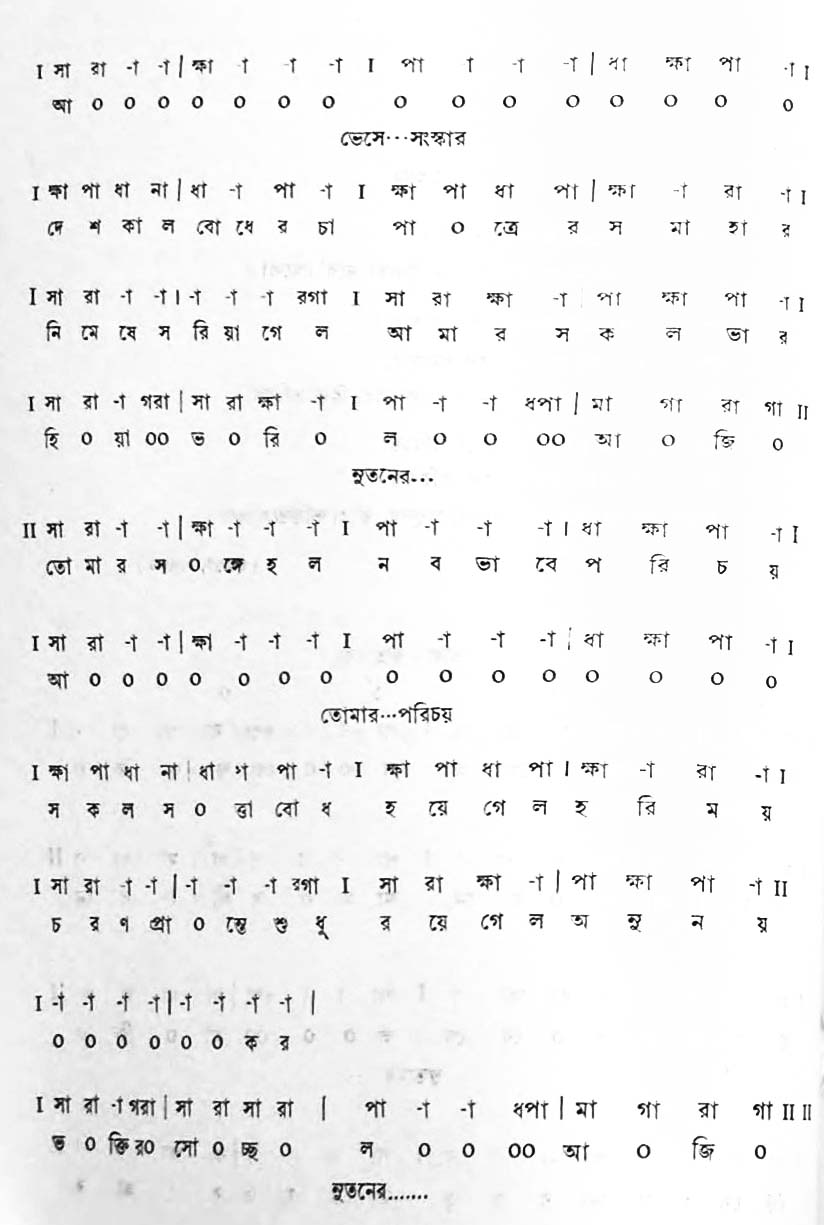 I সা রা -া -া | ক্ষা -া -া -া I পা া -া -া | ধা ক্ষা পা -া I
আ ০ ০ ০ ০ ০ ০ ০ ০ ০ ০ ০ ০ ০ ০ ০
ভেসে···সংস্কার
I ক্ষা পা ধা না | ধা -া পা -া I ক্ষা পা ধা পা | ক্ষা -া রা -া I
দে শ কা ল বো ধে র চা পা ০ ত্রে র স মা হা র
I সা রা -া -া । -া -া -া রগা I সা রা ক্ষা -া | পা ক্ষা পা -া I
নি মে ষে স রি য়া গে ল আ মা র স ক ল ভা র
I সা রা -া গরা | সা রা ক্ষা -া I পা -া -া ধপা | মা গা রা গা II
হি ০ য়া ০০ ভ ০ রি ০ ল ০ ০ ০০ আ ০ জি ০
নূতনের...
II সা রা -া -া | ক্ষা -া -া -া I পা -া -া -া । ধা ক্ষা পা -া I
তো মা র স ০ ঙ্গে হ ল ন ব ভা বে প রি চ য়
I সা রা -া -া | ক্ষা -া -া -া I পা -া -া -া | ধা ক্ষা পা -া I
আ ০ ০ ০ ০ ০ ০ ০ ০ ০ ০ ০ ০ ০ ০ ০
তোমার···পরিচয়
I ক্ষা পা ধা না | ধা া পা -া I ক্ষা পা ধা পা । ক্ষা -া রা -া I
স ক ল স ০ ত্তা বো ধ হ য়ে গে ল হ রি ম য়
I সা রা -া -া | -া -া -া রগা I সা রা ক্ষা -া | পা ক্ষা পা -া II
চ র ণ প্রা ০ ন্তে শু ধু র য়ে গে ল অ নু ন য়
I -া -া -া -া | -া -া -া -া |
০ ০ ০ ০ ০ ০ ক র
I সা রা -া গরা | সা রা সা রা | পা -া -া ধপা | মা গা রা গা II II
ভ ০ ক্তি র০ সো ০ চ্ছ ০ ল ০ ০ ০০ আ ০ জি ০
নূতনের.......